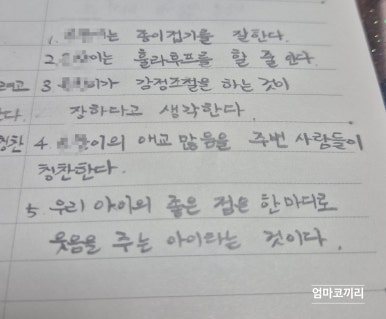 1. 는 종이접기를 잘한다.
2. 이는 훌라후프를 할 줄 안다.
3 이가 감정조절을 하는 것이
다. 장하다고 생각한다.
칭찬 4. 이의 애교 많음을 주변 사람들이
칭찬한다.
5. 우리 아이의 좋은 점은 한마디로
웃음을 주는 아이라는 것이다.
엄마코끼리